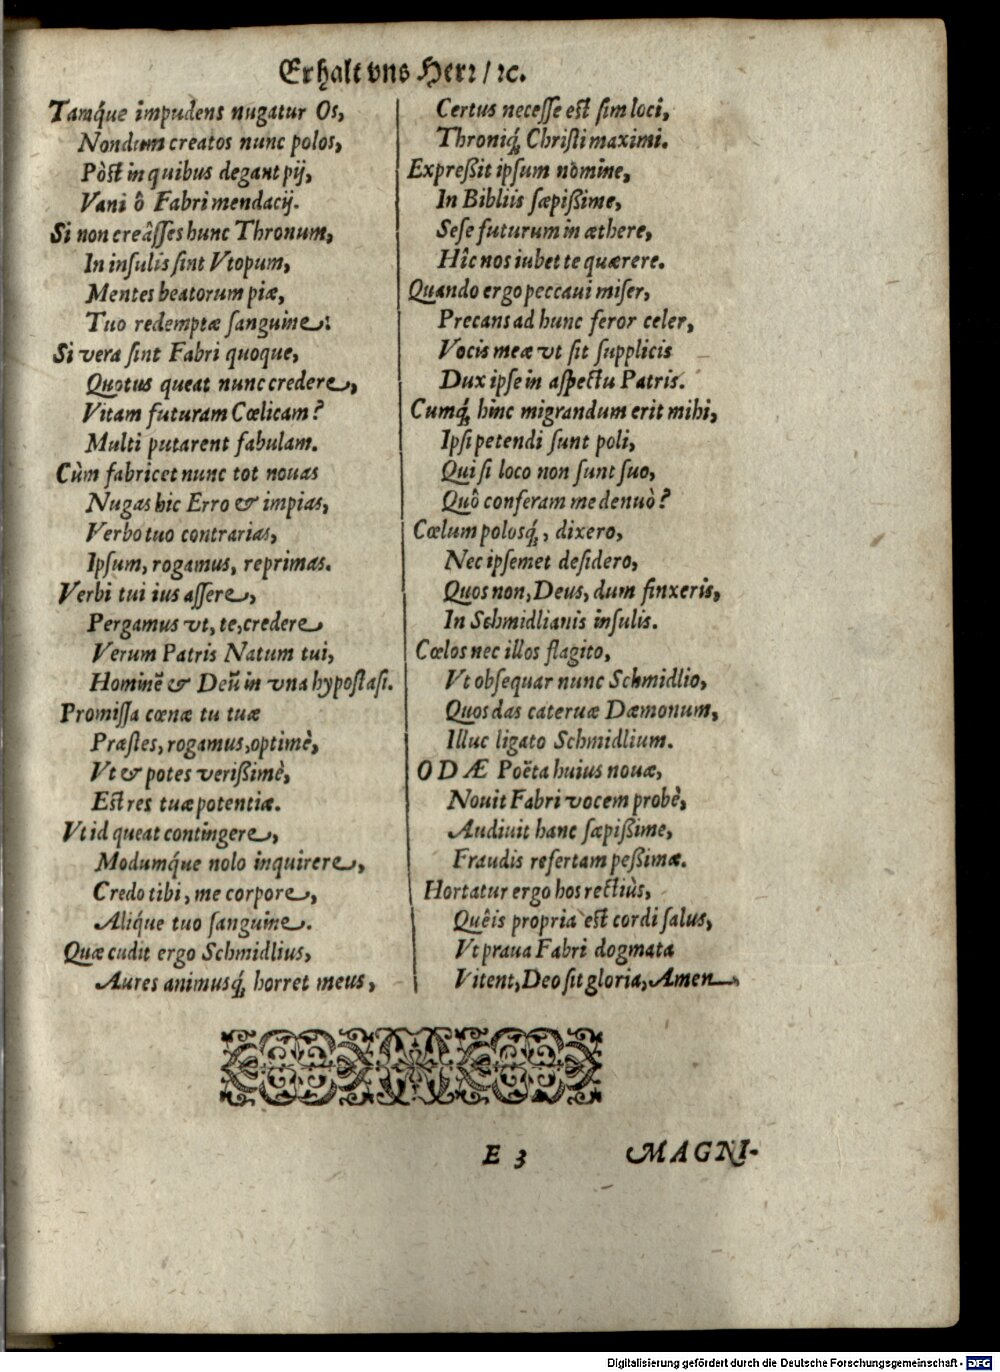 Erhalt vns Herr / ꝛc.
Tamq́ue impudens nugatur Os,
Nondum creatos nunc polos,
Pòst in quibus degant pij,
Vani ô Fabri mendacij.
Si non creâsses hunc Thronum,
In insulis sint Vtopum,
Mentes beatorum piæ,
Tuo redemptæ sanguine:
Si vera sint Fabri quoque,
Quotus queat nunc credere,
Vitam futuram Cœlicam?
Multi putarent fabulam.
Cùm fabricet nunc tot nouas
Nugas hic Erro & impias,
Verbo tuo contrarias,
Ipsum, rogamus, reprimas.
Verbi tui ius assere,
Pergamus vt, te, credere
Verum Patris Natum tui,
Hominẽ & Deũ in vna hypostasi.
Promissa cœnæ tu tuæ
Præstes, rogamus, optimè,
Vt & potes verißimè,
Est res tuæ potentiæ.
Vt id queat contingere,
Modumq́ue nolo inquirere,
Credo tibi, me corpore,
Aliq́ue tuo sanguine.
Quæ cudit ergo Schmidlius,
Aures animusq́; horret meus,
Certus necesse est sim loci,
Throniq́; Christi maximi.
Expreßit ipsum nomine,
In Bibliis sæpißime,
Sese futurum in æthere,
Hîc nos iubet te quærere.
Quando ergo peccaui miser,
Precans ad hunc feror celer,
Vocis meæ vt sit supplicis
Dux ipse in aspectu Patris.
Cumq́; hinc migrandum erit mihi,
Ipsi petendi sunt poli,
Qui si loco non sunt suo,
Quô conferam me denuò?
Cœlum polosq́;, dixero,
Nec ipsemet desidero,
Quos non, Deus, dum finxeris,
In Schmidlianis insulis.
Cœlos nec illos flagito,
Vt obsequar nunc Schmidlio,
Quos das cateruæ Dæmonum,
Illuc ligato Schmidlium.
ODÆ Poëta huius nouæ,
Nouit Fabri vocem probè,
Audiuit hanc sæpißime,
Fraudis refertam peßimæ.
Hortatur ergo hos rectiùs,
Quêis propria est cordi salus,
Vt praua Fabri dogmata
Vitent, Deo sit gloria, Amen.
E 3 MAGNI-
Digitalisierung gefördert durch die Deutsche Forschungsgemeinschaft - DFG